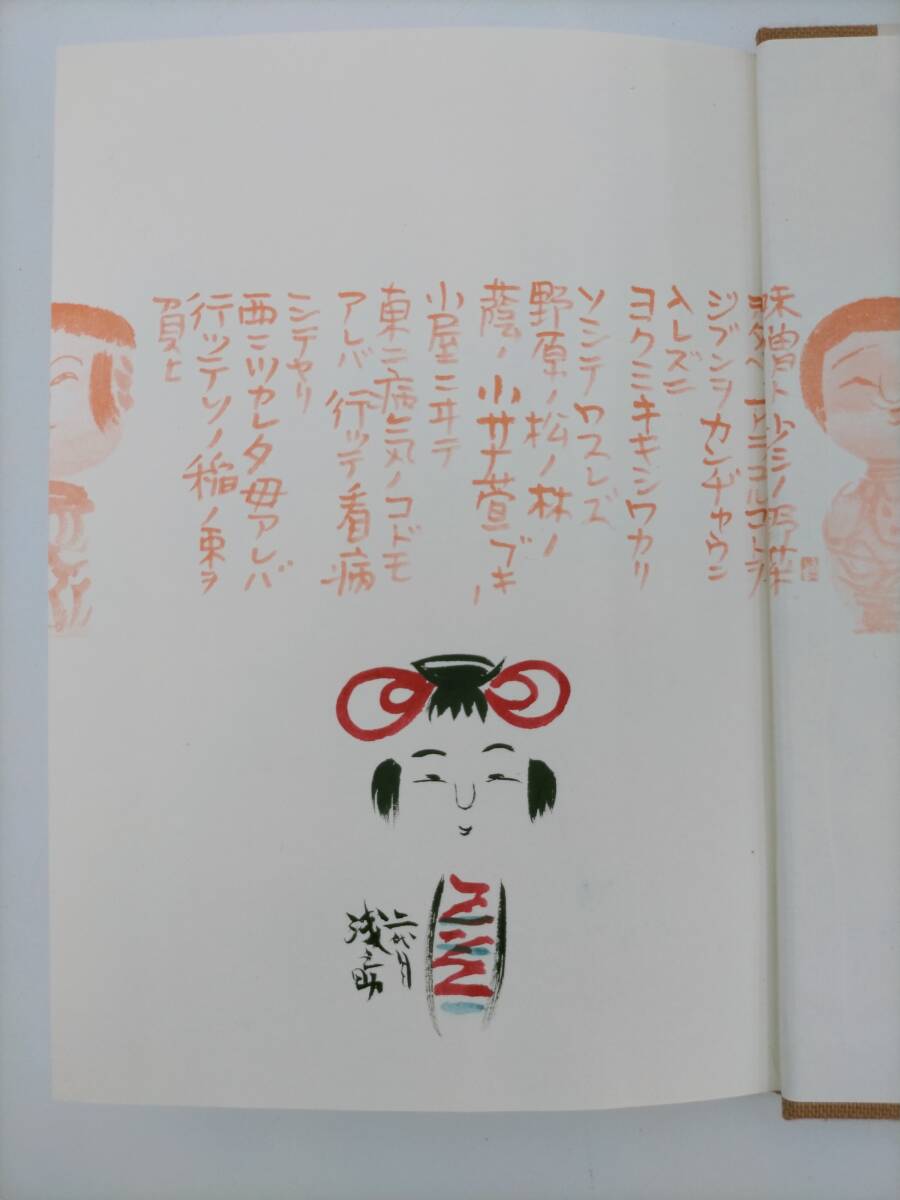 味噌ト少シノ野菜
ヲタベ アラユルコトヲ
ジブンヲカンヂャウニ
入レズニ
ヨクミキキシワカリ
ソシテワスレズ
野原ノ松ノ林ノ
蔭ノ小サナ萱ブキノ
小屋ニヰテ
東ニ病気ノコドモ
アレバ行ッテ看病
シテヤリ
西ニツカレタ母アレバ
行ッテソノ稲ノ束ヲ
負ヒ
浅之助